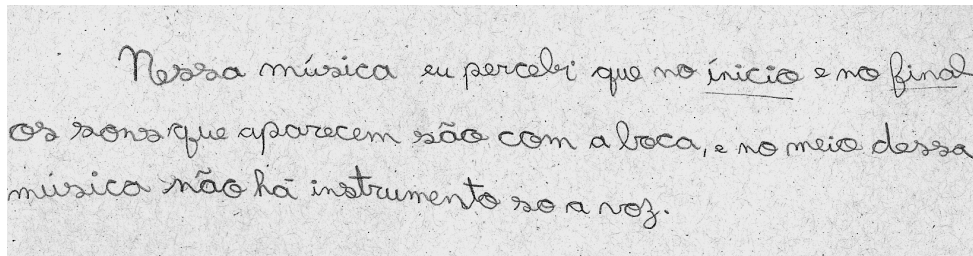 Nessa música eu percebi que no ínicio e no final
os sons que aparecem são com a boca, e no meio dessa
música não há instrumento so a voz.